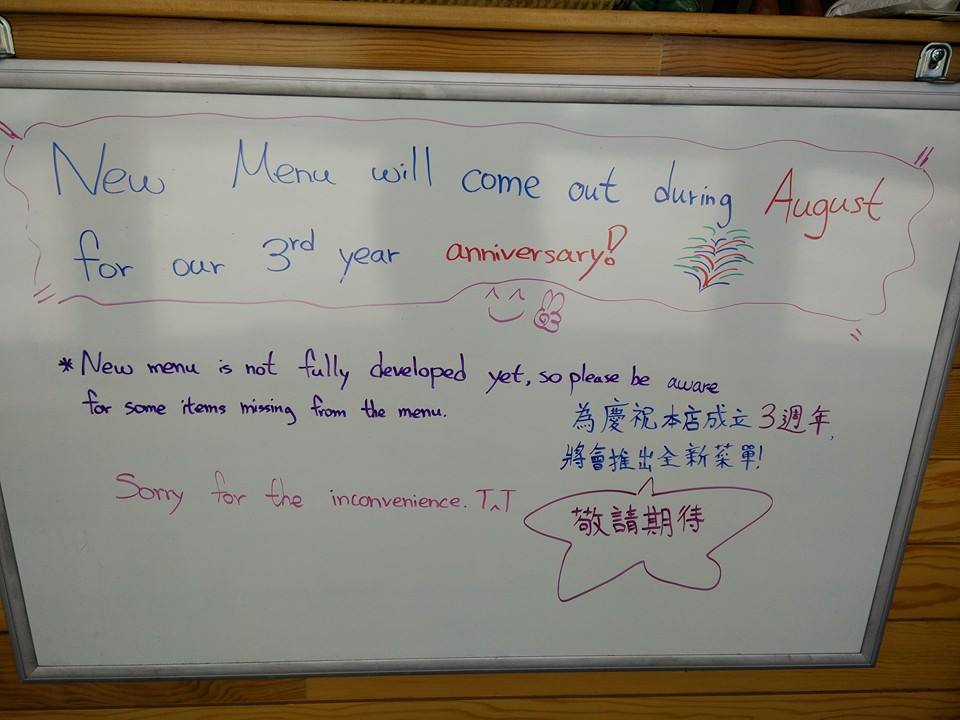 New Menu will come out during August
for our 3rd year anniversary!
* New menu is not fully developed yet, so please be aware
for some items missing from the menu.
為慶祝本店成立3週年,
將會推出全新菜單!
Sorry for the inconvenience. T^T
敬請期待